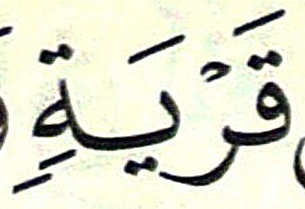 قَرْيَةٍ